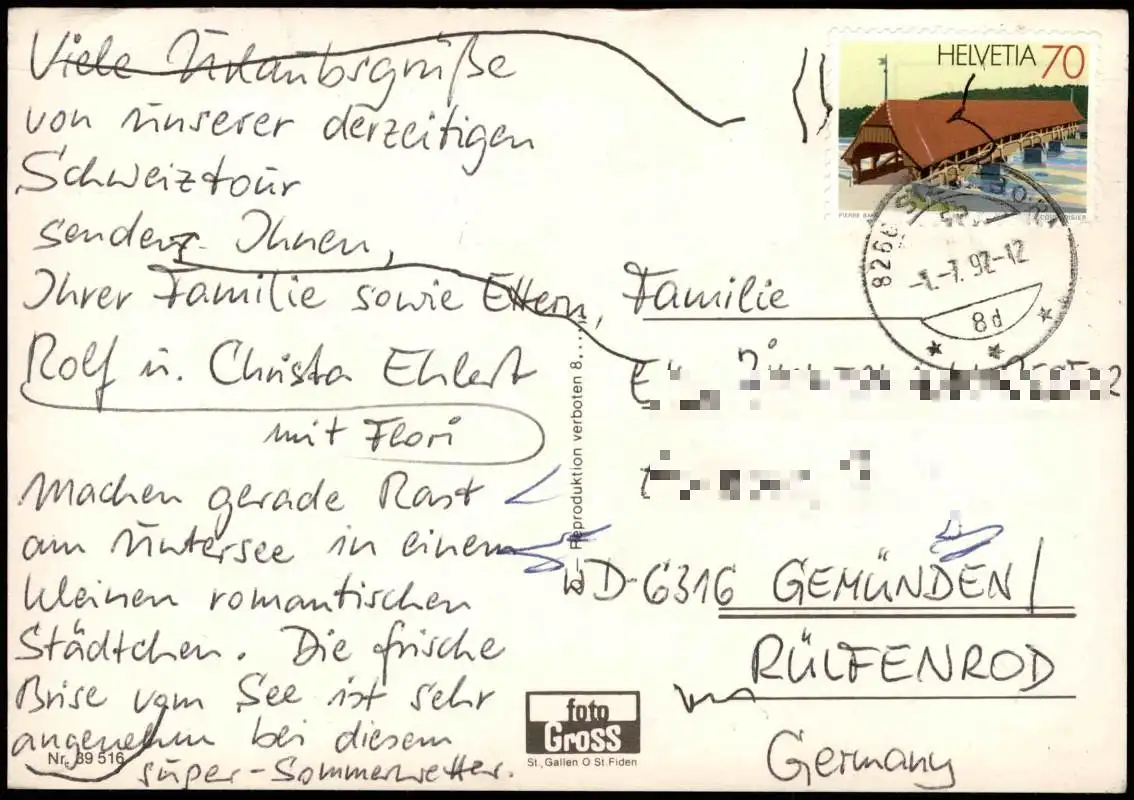 Viele Urlaubsgrüße
von unserer derzeitigen
Schweiztour
senden Ihnen,
Ihrer Familie sowie Eltern,
Rolf u. Christa Ehlert
mit Flori
Machen gerade Rast
am Untersee in einem
kleinen romantischen
Städtchen. Die frische
Brise vom See ist sehr
angenehm bei diesem
super-Sommerwetter.
Nr. 39 516
Reproduktion verboten 8....
foto
Gross
St. Gallen O St. Fiden
HELVETIA 70
PIERRE
8266
-1.-7.92-12
8d
Familie
WD-6316 GEMÜNDEN/
RÜLFENROD
Germany